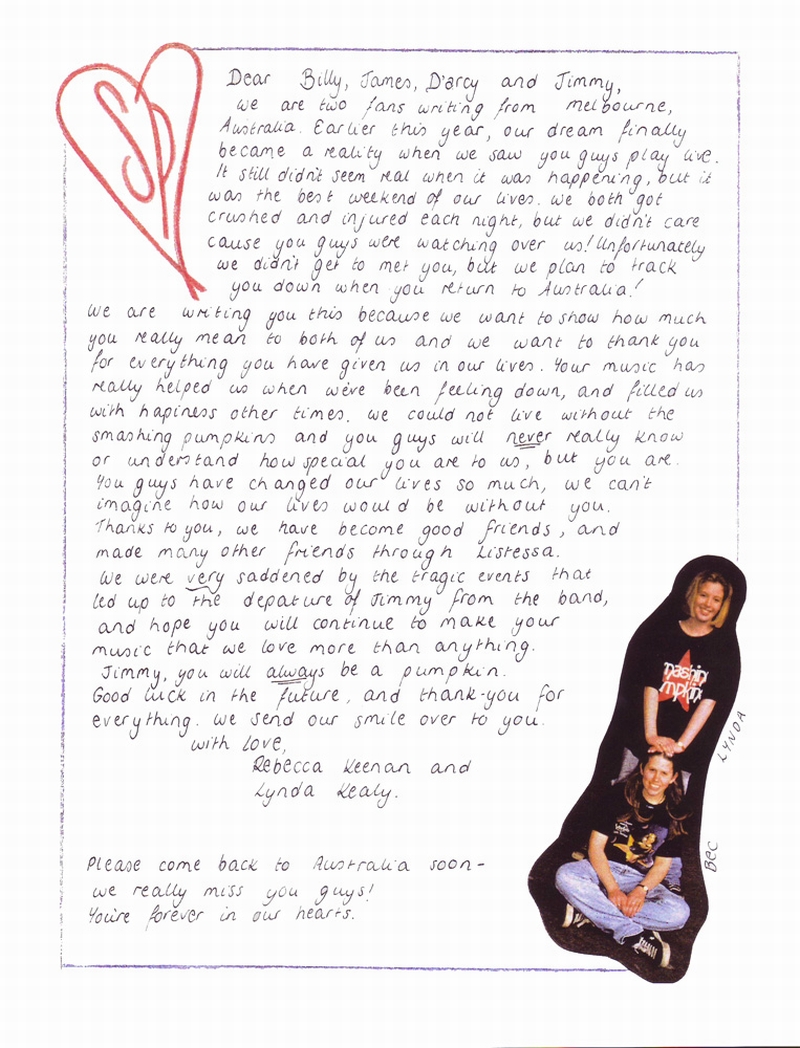 SP
Dear Billy, James, D'arcy and Jimmy,
we are two fans writing from melbourne,
Australia. Earlier this year, our dream finally
became a reality when we saw you guys play live.
It still didn't seem real when it was happening, but it
was the best weekend of our lives. we both got
crushed and injured each night, but we didn't care
cause you guys were watching over us! Unfortunately
we didn't get to met you, but we plan to track
you down when you return to Australia!
We are writing you this because we want to show how much
you really mean to both of us and we want to thank you
for everything you have given us in our lives. Your music has
really helped us when we've been feeling down, and filled us
with hapiness other times. we could not live without the
smashing pumpkins and you guys will never really know
or understand how special you are to us, but you are.
You guys have changed our lives so much, we can't
imagine how our lives would be without you.
Thanks to you, we have become good friends, and
made many other friends through Listessa.
We were very saddened by the tragic events that
led up to the depature of Jimmy from the band,
and hope you will continue to make your
music that we love more than anything.
Jimmy, you will always be a pumpkin.
Good luck in the future, and thank-you for
everything. we send our smile over to you.
with love,
Rebecca Keenan and
Lynda Kealy.
Please come back to Australia soon-
we really miss you guys!
You're forever in our hearts.
mashin
mpkin
LYNDA
Bec